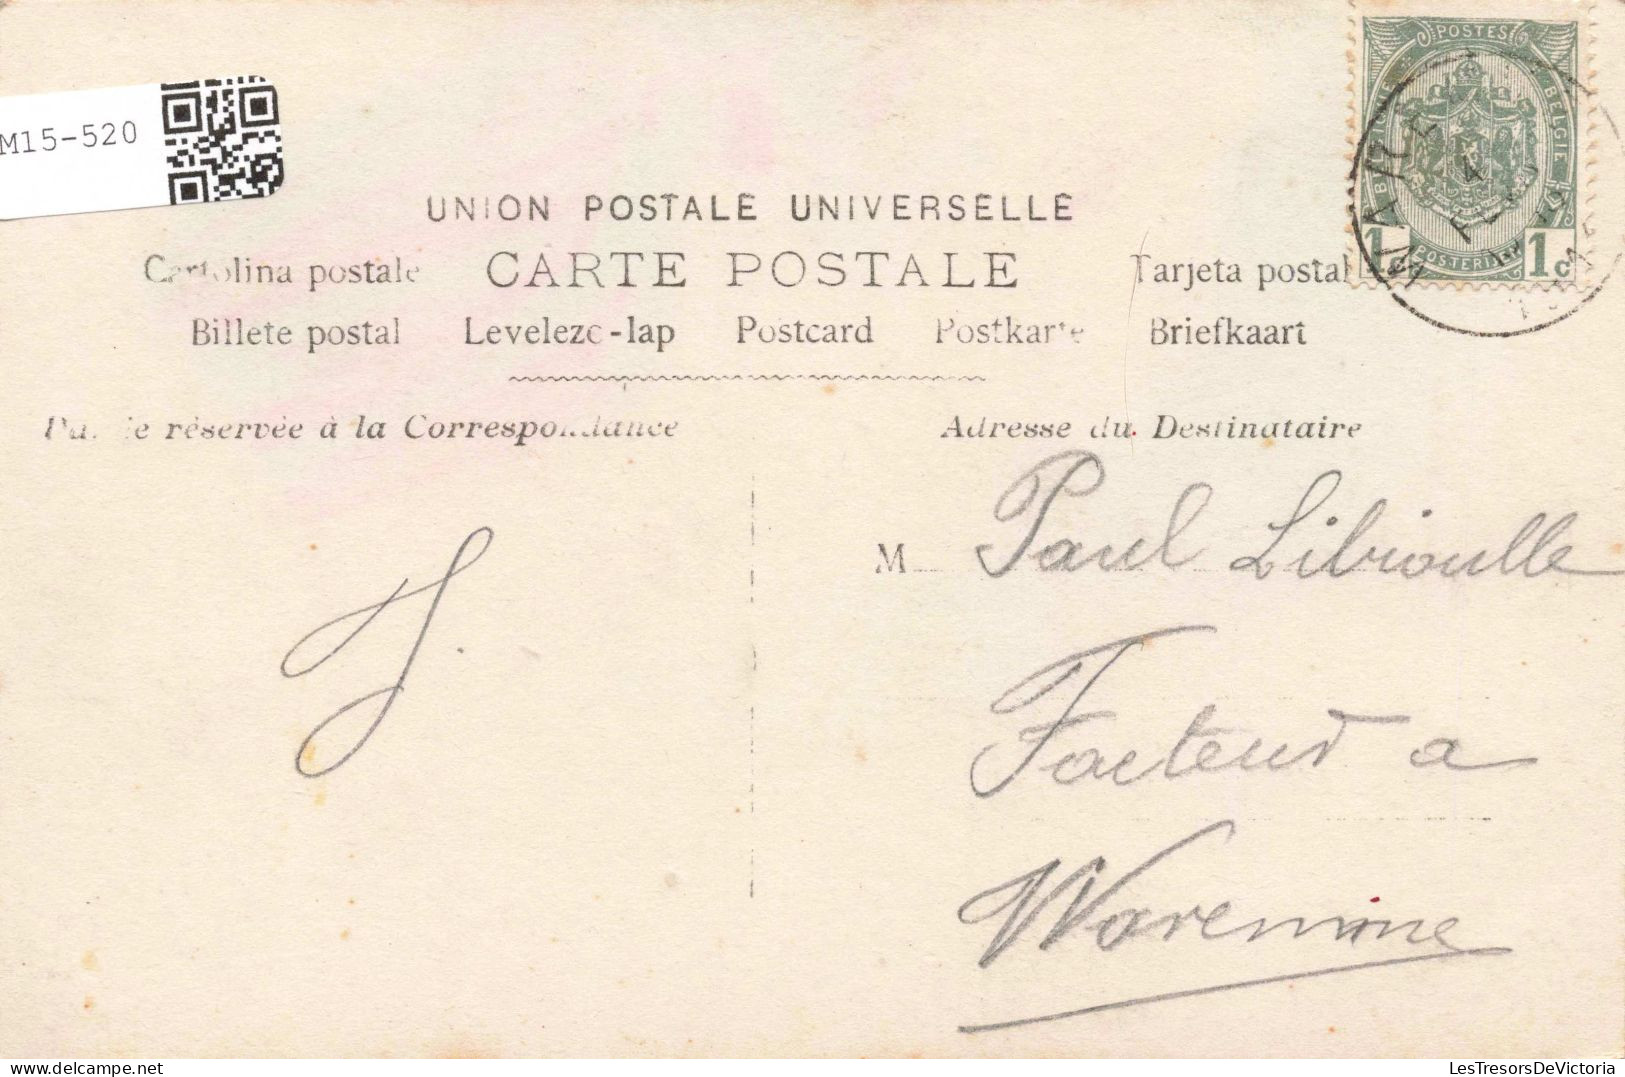 M15-520
POSTES
BELGIQUE BELGIE
1c 1c
POSTERIJEN
WAREMME
UNION POSTALE UNIVERSELLE
Cartolina postale CARTE POSTALE Tarjeta postal
Billete postal Levelezo-lap Postcard Postkarte Briefkaart
Partie réservée à la Correspondance Adresse du Destinataire
M Paul Libioulle
J.
Facteur a
Waremme
LesTresorsDeVictoria